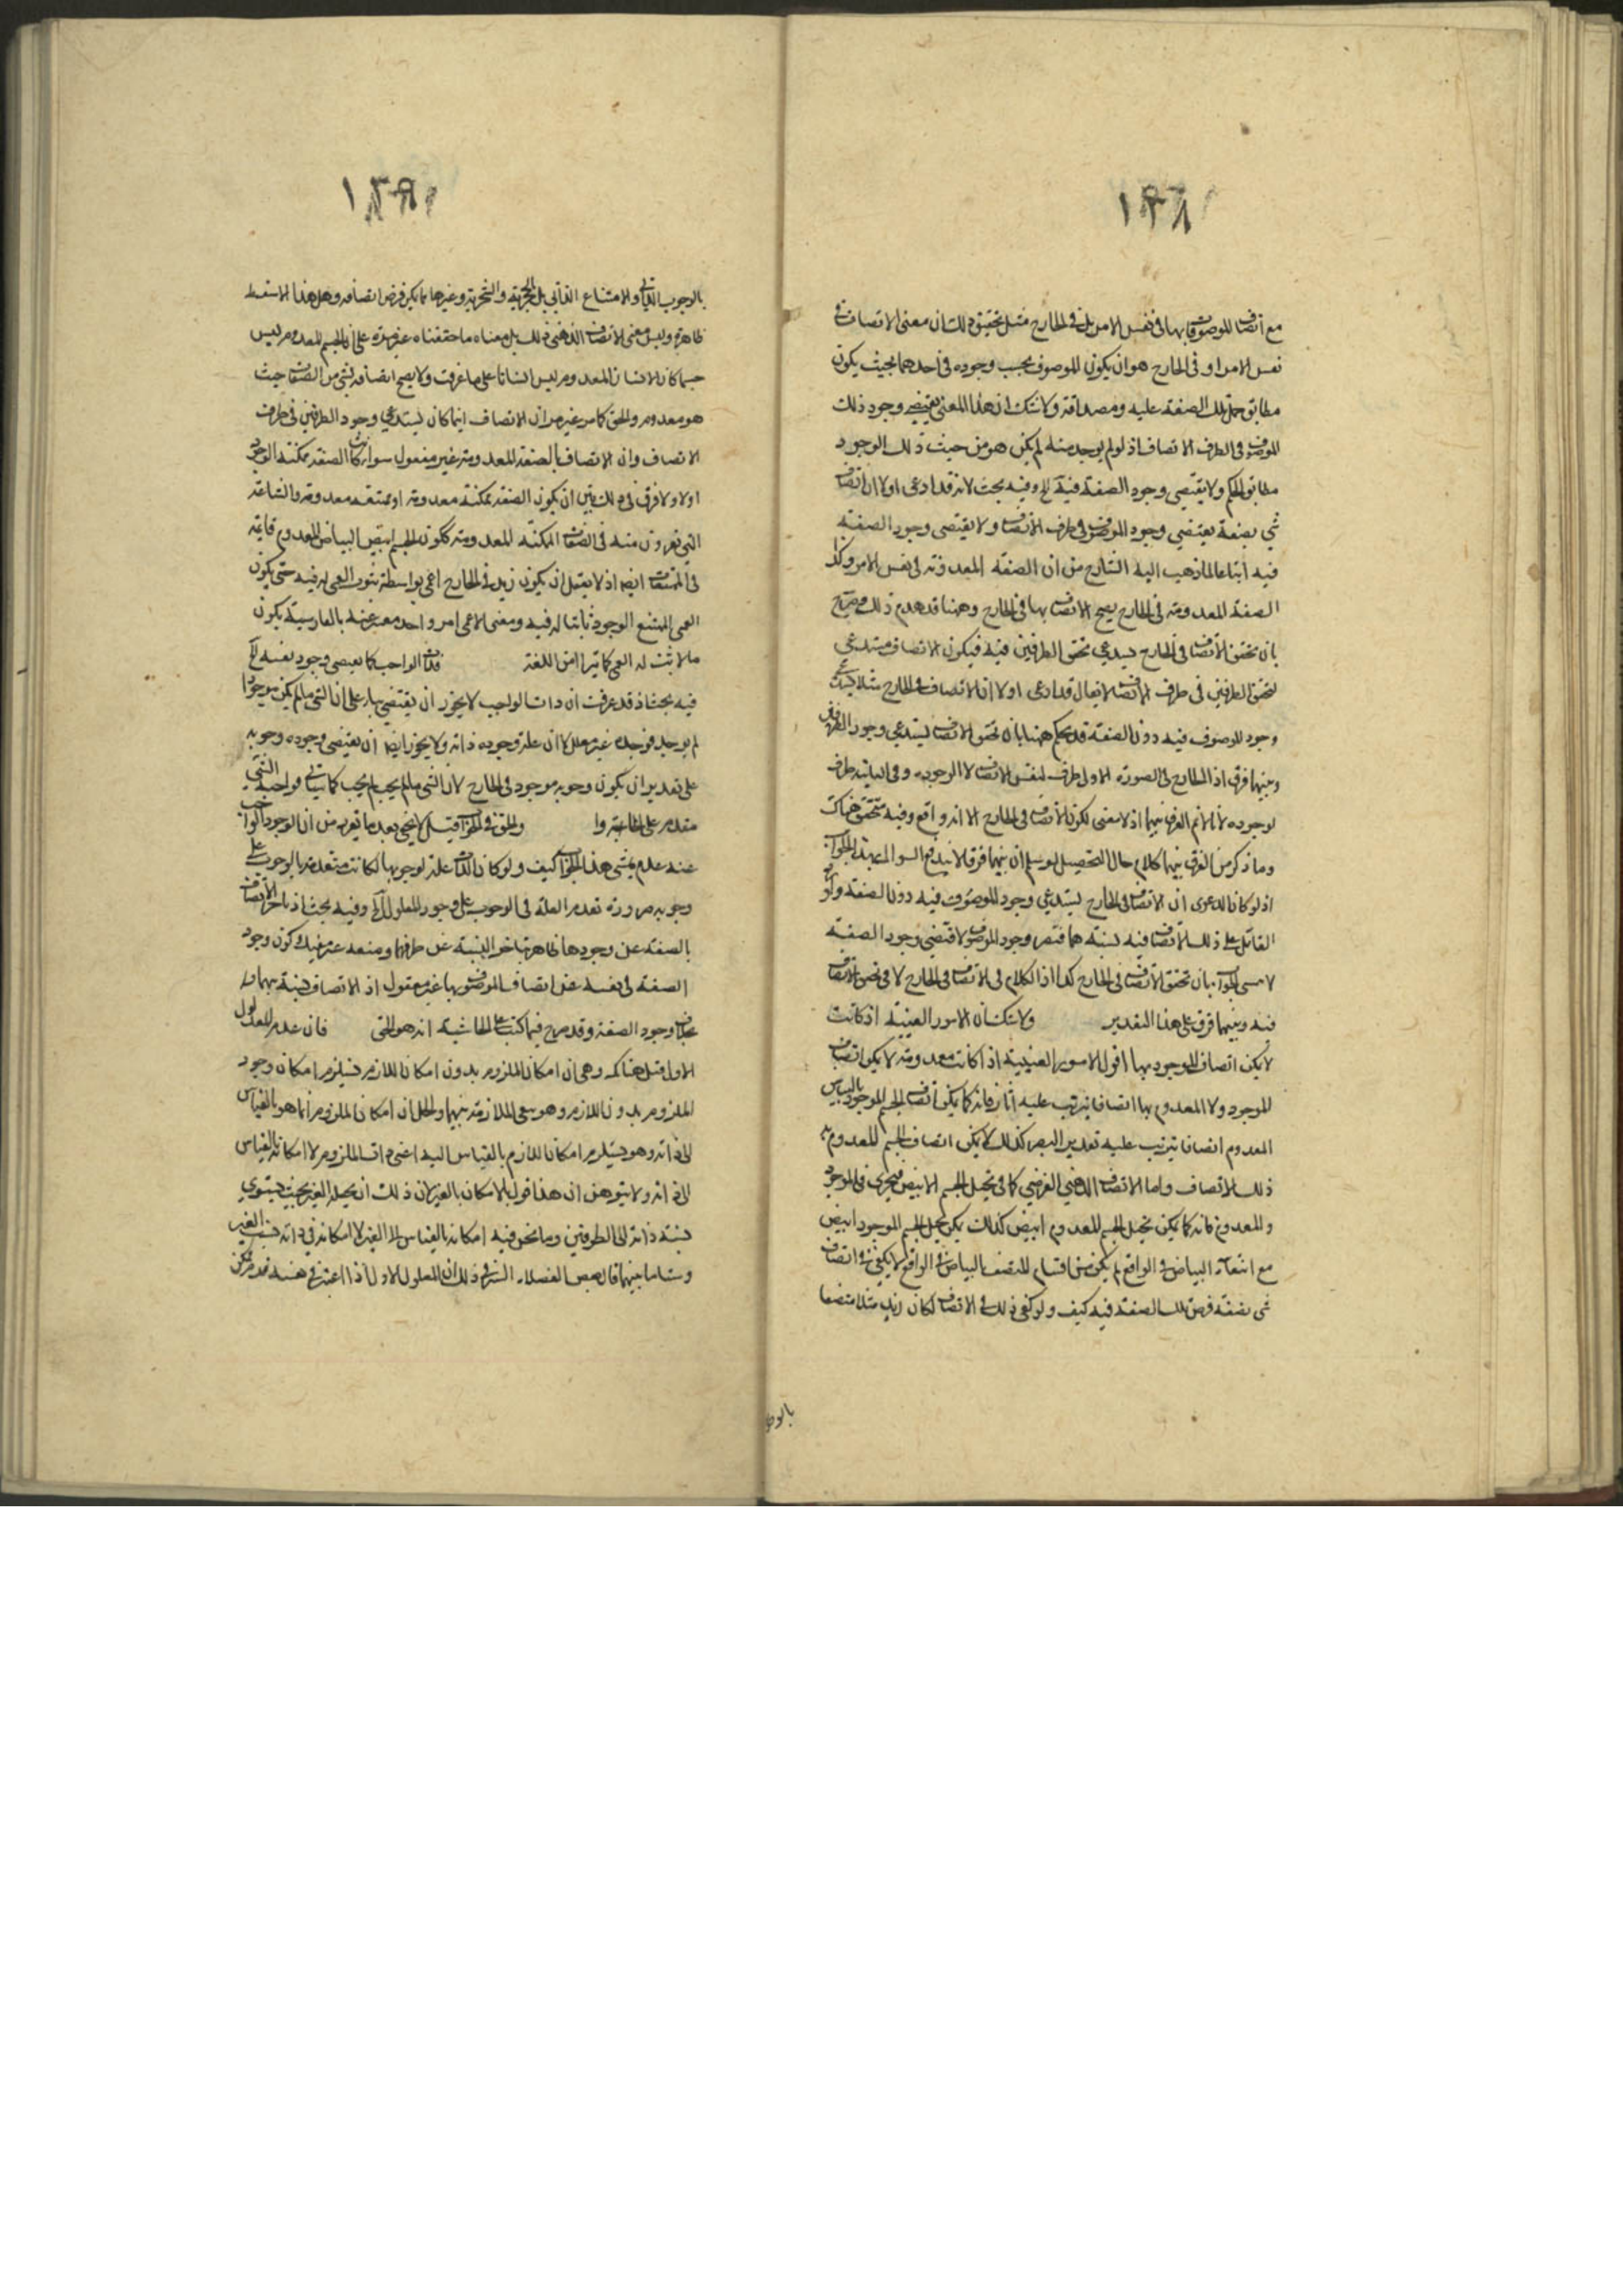 مع اتصاف الموصوف بها فى نفس الامر بل فى الخارج قيل تحقيق ذلك ان معنى الاتصاف فى
نفس الامر او فى الخارج هو ان يكون الموصوف بحسب وجوده فى احدهما بحيث يكون
مطابق حمل تلك الصفة عليه ومصداقه ولا شك ان هذا المعنى يقتضى وجود ذلك
الموصوف فى الظرف الاتصاف اذ لو لم يوجد منه لم يكن هو من حيث ذلك الوجود
مطابق الحكم ولا يقتضى وجود الصفة فيه الخ وفيه بحث لانه قد ادعى اولا ان اتصاف
شى بصفة يقتضى وجود الموصوف فى ظرف الاتصاف ولا يقتضى وجود الصفة
فيه اتباعا لما ذهب اليه الشارح من ان الصفة المعدومة فى نفس الامر وكذا
الصفة المعدومة فى الخارج يصح الاتصاف بها فى الخارج وههنا قد هدم ذلك وصرح
بان تحقق الاتصاف فى الخارج يستدعى تحقق الطرفين فيه فيكون الاتصاف مستدعى
لتحقق الطرفين فى ظرف الاتصاف لا يقال قد ادعى اولا ان الاتصاف فى الخارج مثلا يستدعى
وجود الموصوف فيه دون الصفة قد حكم ههنا بان تحقق الاتصاف يستدعى وجود الطرفين
وبينهما فرق اذ الخارج فى الصورة الاولى ظرف لنفس الاتصاف لا لوجوده وفى الثانية ظرف
لوجوده لانا لا نم الفرق بينهما اذ لا معنى لكون الاتصاف فى الخارج الا انه واقع وفيه متحقق هناك
وما ذكر من الفرق بينهما كلام خال التحصيل لو سلم ان بينهما فرقا لا يندفع السوال بهذا الجواب
اذ لو كان الدعوى ان الاتصاف فى الخارج يستدعى وجود الموصوف فيه دون الصفة
القائل على ذلك الاتصاف فيه نسبة وجود الموصوف لاقتضى وجود الصفة
الجواب بان تحقق الاتصاف فى الخارج كذا اذ الكلام فى الاتصاف فى الخارج لا فى تحقق الاتصاف
فيه وبينهما فرق على هذا التقدير ولا شك ان الامور العينية اذ كانت
لا يمكن اتصاف الموجود بها اقول الامور العينية اذا كانت معدومة لا يمكن اتصاف
الموجود ولا المعدوم بها اتصافا يترتب عليه اثار فانه كما يمكن اتصاف الجسم الموجود بالبياض
المعدوم اتصافا يترتب عليه كذلك لا يمكن اتصاف الجسم المعدوم به
ذلك الاتصاف واما الاتصاف الذهنى الفرضى كما فى تخيل الجسم الابيض فيجرى فى الموجود
والمعدوم فانه كما يمكن تخيل الجسم المعدوم ابيض كذلك يمكن تخيل الجسم الموجود ابيض
مع انتفاء البياض فى الواقع لم يكن من اقسام المتصف بالبياض فى الواقع لا يكفى فى اتصاف
شى بصفة فرض تلك الصفة فيه كيف ولو كفى ذلك فى الاتصاف لكان زيد مثلا متصفا
بالوجوب
بالوجوب الذاتى والامتناع الذاتى بل الحجرية والشجرية وغيرها مما يمكن فرض اتصافه وهل هذا الا سفسطة
ظاهرة وليس معنى الاتصاف الذهنى ذلك بل معناه ما حققناه غير مرة على ان الجسم المعدوم ليس
جسما كما ان الانسان المعدوم ليس انسانا على ما عرفت ولا يصح اتصافه بشى من الصفات حيث
هو معدوم والحق كما مر غير مرة ان الاتصاف انما كان يستدعى وجود الطرفين فى ظرف
الاتصاف وان الاتصاف بالصفة المعدومة غير معقول سواء كانت الصفة ممكنة الوجود
اولا ولا فرق فى ذلك بين ان يكون الصفة ممكنة معدومة او ممتنعة معدومة والشناعة
التى تعرفون منه فى الصفات الممكنة المعدومة ككون الجسم ابيض البياض المعدوم قائمة
فى الممتنعات ايضا اذ لا يعقل ان يكون زيد فى الخارج اعمى بواسطة ثبوت العمى له فيه حتى يكون
العمى الممتنع الوجود ثابتا له فيه ومعنى الاعمى امر واحد معبر عنه بالفارسية يكون
ما لا ثبت له العمى كما من اللغة فذات الواجب كما يقتضى وجود نفسه الخ
فيه بحث اذ قد عرفت ان ذات الواجب لا يجوز ان يقتضى بناء على ان الشى ما لم يكن موجودا
لم يوجد فوجده غير معلل لا ان علة وجوده ذاته ولا يجوز ايضا ان يقتضى وجوده وجوبه
على تقدير ان يكون وجوبه موجود فى الخارج لان الشى ما لم يجب لم يجب كما سياتى فواجبية الشى
مقدم على والحق فى الجواب قيل لا يخفى بعد ما تقرر من ان الوجود الواجب
عنه عدم تمشى هذا الجواب كيف ولو كان الذات علة لوجوبها لكانت متقدمة بالوجوب على
وجوبه ضرورة تقدم العلة فى الوجوب على وجود المعلول الخ وفيه بحث اذ تاخر الاتصاف
بالصفة عن وجودها ظاهر تاخر النسبة عن طرفيها ومنعه كون وجود
الصفة فى نفسه عن اتصاف الموصوف بها غير معقول اذ الاتصاف نسبة
بخلاف وجود الصفة وقد صرح فيما كتب على الحاشية انه هو الحق فان عدم المعلول
الاول قيل وهى ان امكان الملزوم بدون امكان اللازم يستلزم امكان وجود
الملزوم بدون اللازم وهو ينفى الملازمة بينهما والحل ان امكان الملزوم انما هو بالقياس
الى ذاته وهو يستلزم امكان اللازم بالقياس اليه اعنى ذات الملزوم لا امكانه بالقياس
الى ذاته ولا يتوهمن ان هذا قول بالامكان بالغير لان ذلك ان يجعله الغير بحيث يستوى
نسبة ذاته الى الطرفين وما نحن فيه امكانه بالقياس الى الغير لا امكانه فى ذاته بسبب الغير
وشتان ما بينهما قال بعض الفضلاء السر فى ذلك ان المعلول الاول اذا اعتبر فى نفسه